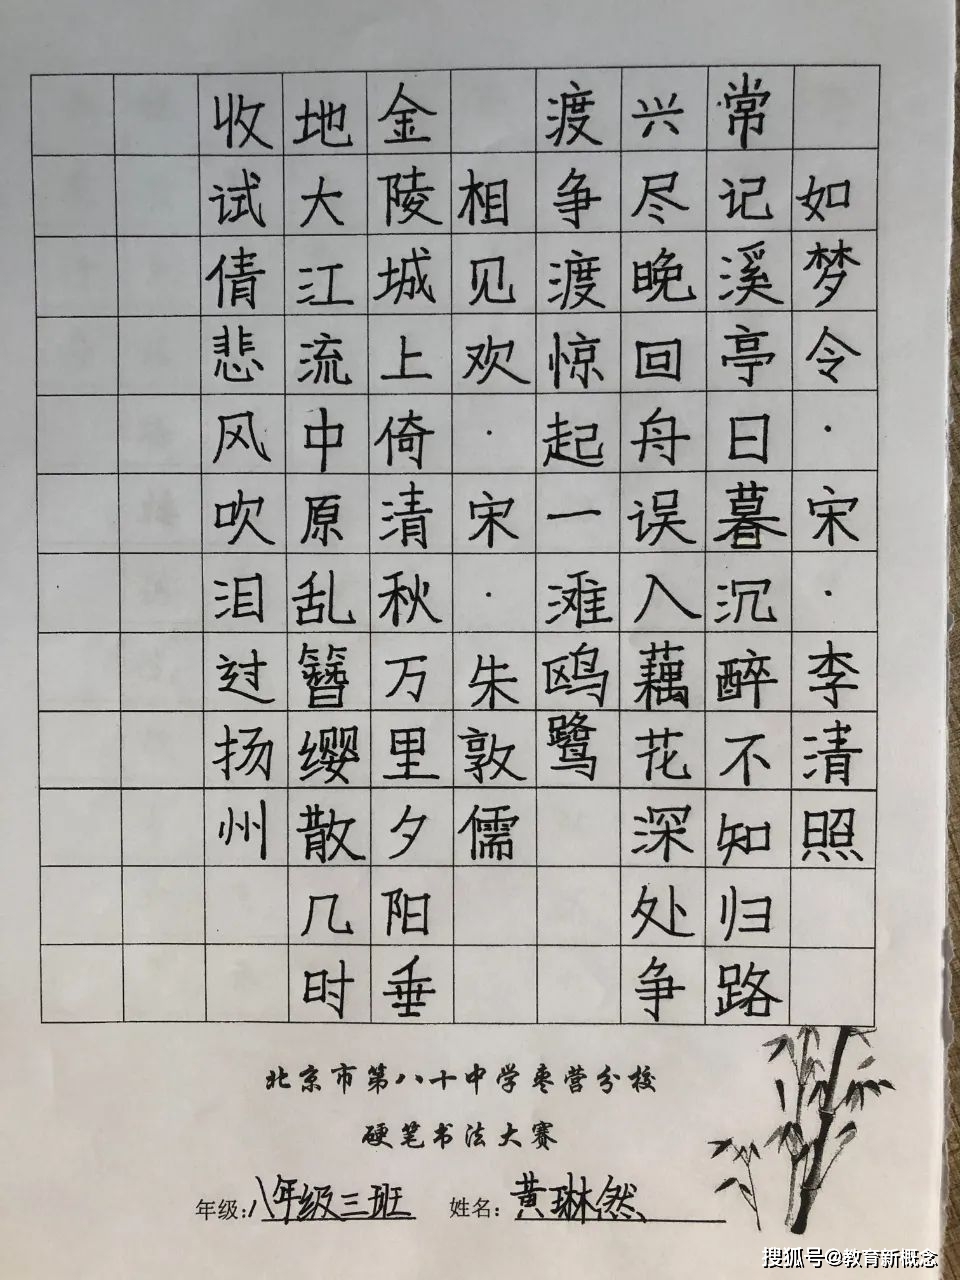 如梦令·宋·李清照
常记溪亭日暮沉醉不知归路
兴尽晚回舟误入藕花深处争
渡争渡惊起一滩鸥鹭
相见欢·宋·朱敦儒
金陵城上倚清秋万里夕阳垂
地大江流中原乱簪缨散几时
收试倩悲风吹泪过扬州
北京市第八十中学枣营分校
硬笔书法大赛
年级:八年级三班 姓名:黄琳然
搜狐号@教育新概念